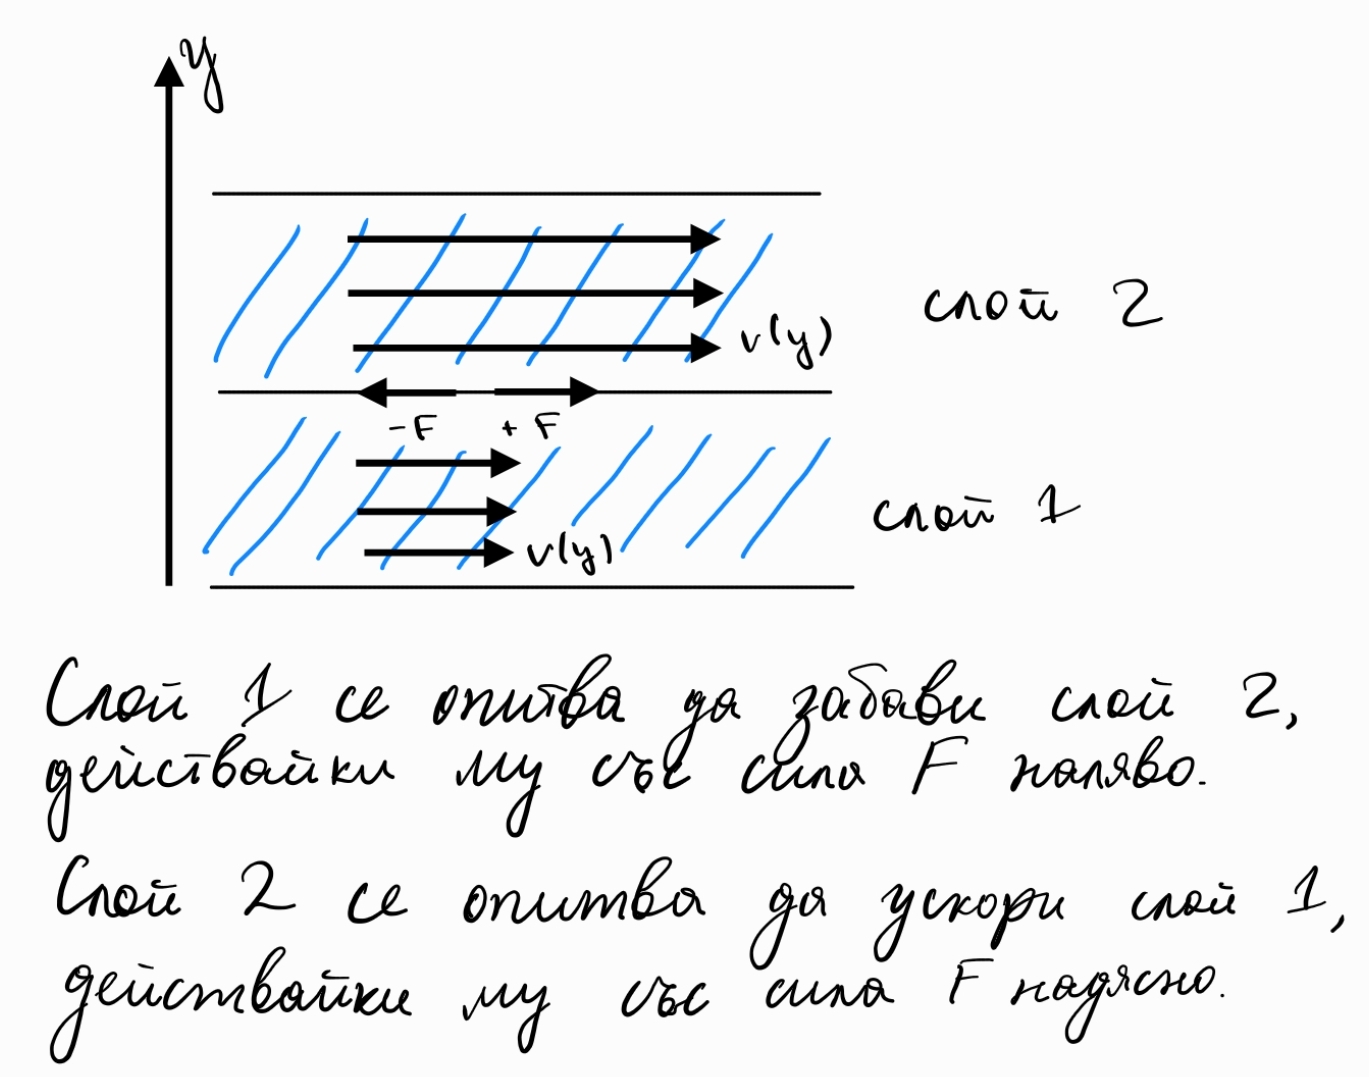 y
слой 2
v(y)
-F + F
слой 1
v(y)
Слой 1 се опитва да забави слой 2,
действайки му със сила F наляво.
Слой 2 се опитва да ускори слой 1,
действайки му със сила F надясно.